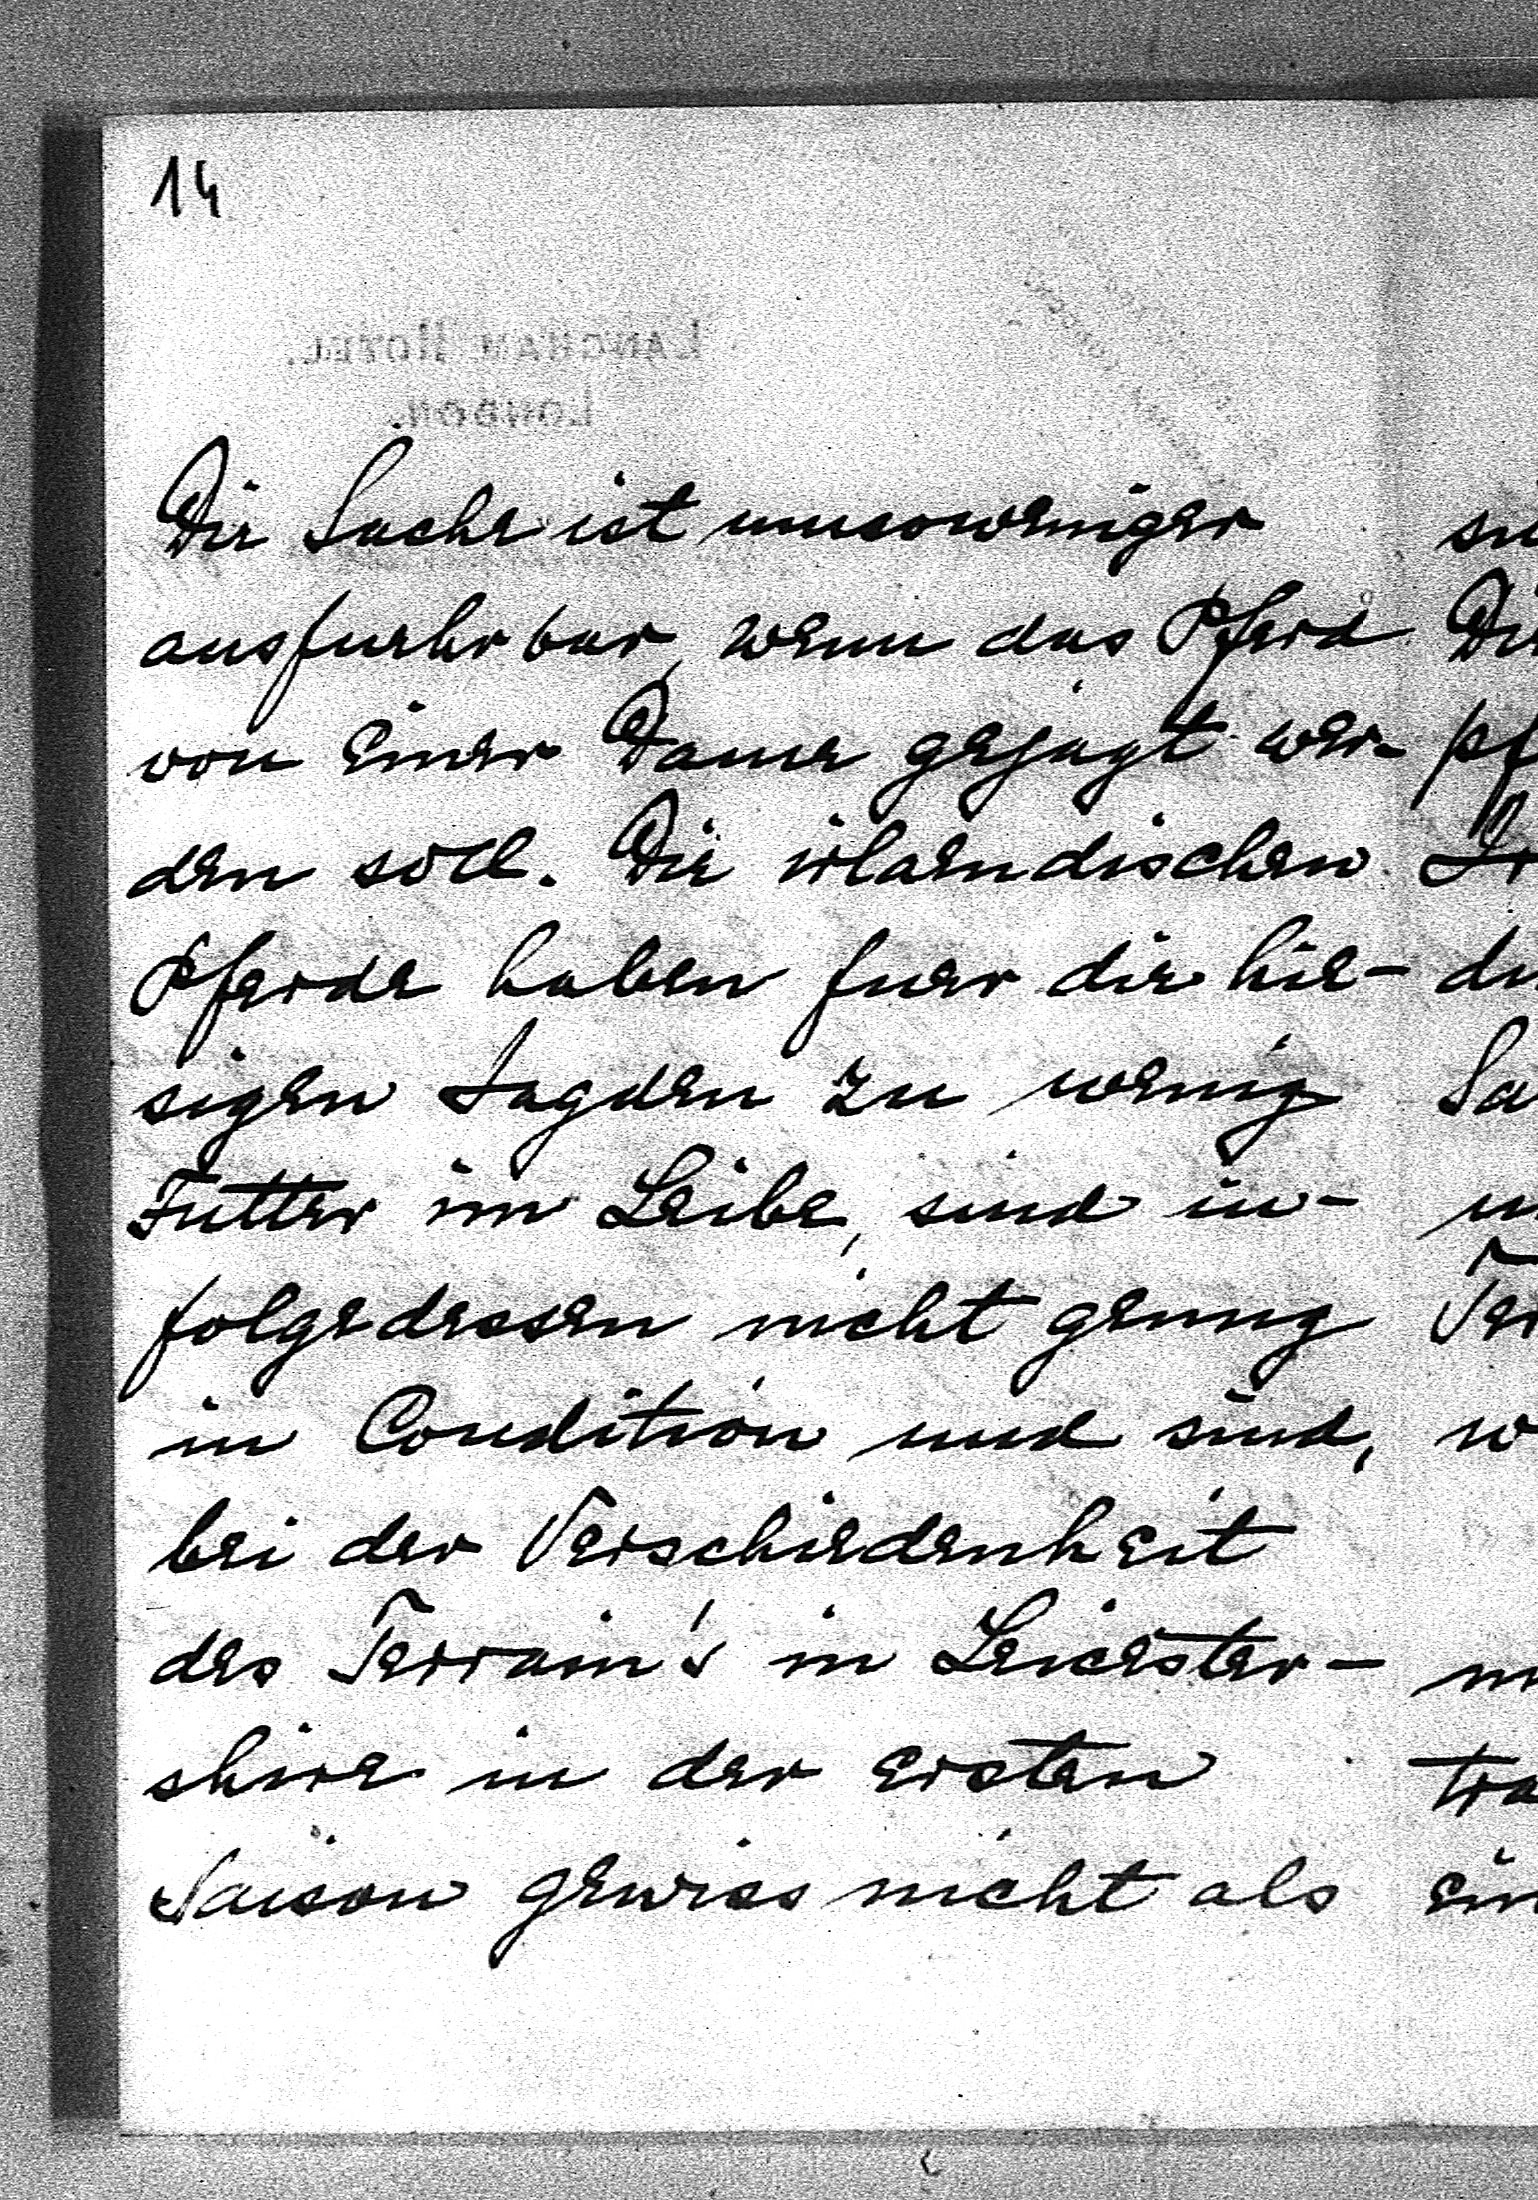 14
LANGHAM HOTEL.
LONDON.
Die Sache ist umsoweniger
ausfuehrbar, wenn das Pferd
von einer Dame gejagt wer-
den soll. Die irlaendischen
Pferde haben fuer die hie-
sigen Jagden zu wenig
Futter im Leibe, sind in-
folgedessen nicht genug
in Condition und sind,
bei der Verschiedenheit
des Terrain's in Leicester-
shire in der ersten
Saison gewiss nicht als